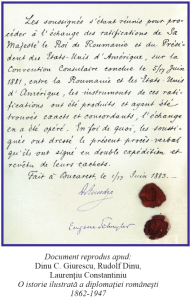 Les soussignés s'étant réunis pour pro-
céder à l'échange des ratifications de Sa
Majesté le Roi de Roumanie et du Prési-
dent des États-Unis d'Amérique, sur la
Convention Consulaire conclue le 5/17 Juin
1881, entre la Roumanie et les États-Unis
d'Amérique, les instruments de ces rati-
fications ont été produits et ayant été
trouvés exacts et concordants, l'échange
en a été opéré. En foi de quoi, les soussi-
gnés ont dressé le présent procès verbal
qu'ils ont signé en double expédition et
revêtu de leurs cachets.
Fait à Bucarest, le 1/13 Juin 1883.
Eugene Schuyler
Document reprodus apud:
Dinu C. Giurescu, Rudolf Dinu,
Laurențiu Constantiniu
O istorie ilustrată a diplomației românești
1862-1947